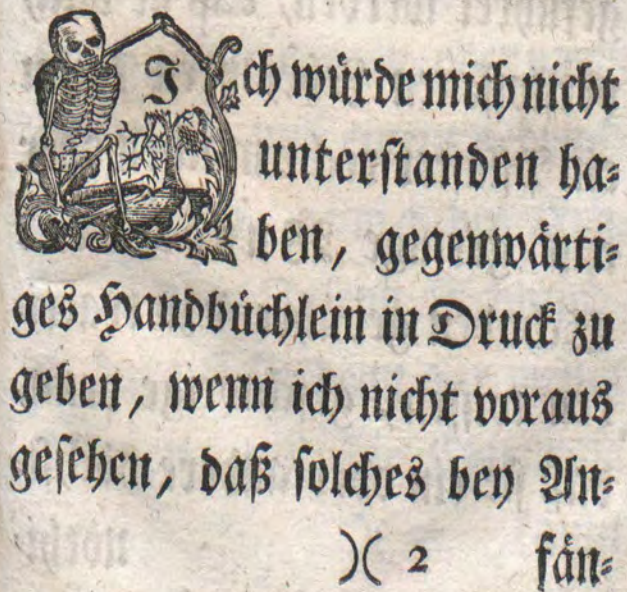 Ich würde mich nicht
unterſtanden ha⸗
ben, gegenwärti⸗
ges Handbüchlein in Druck zu
geben, wenn ich nicht voraus
geſehen, daß ſolches bey An⸗
)( 2 fän⸗